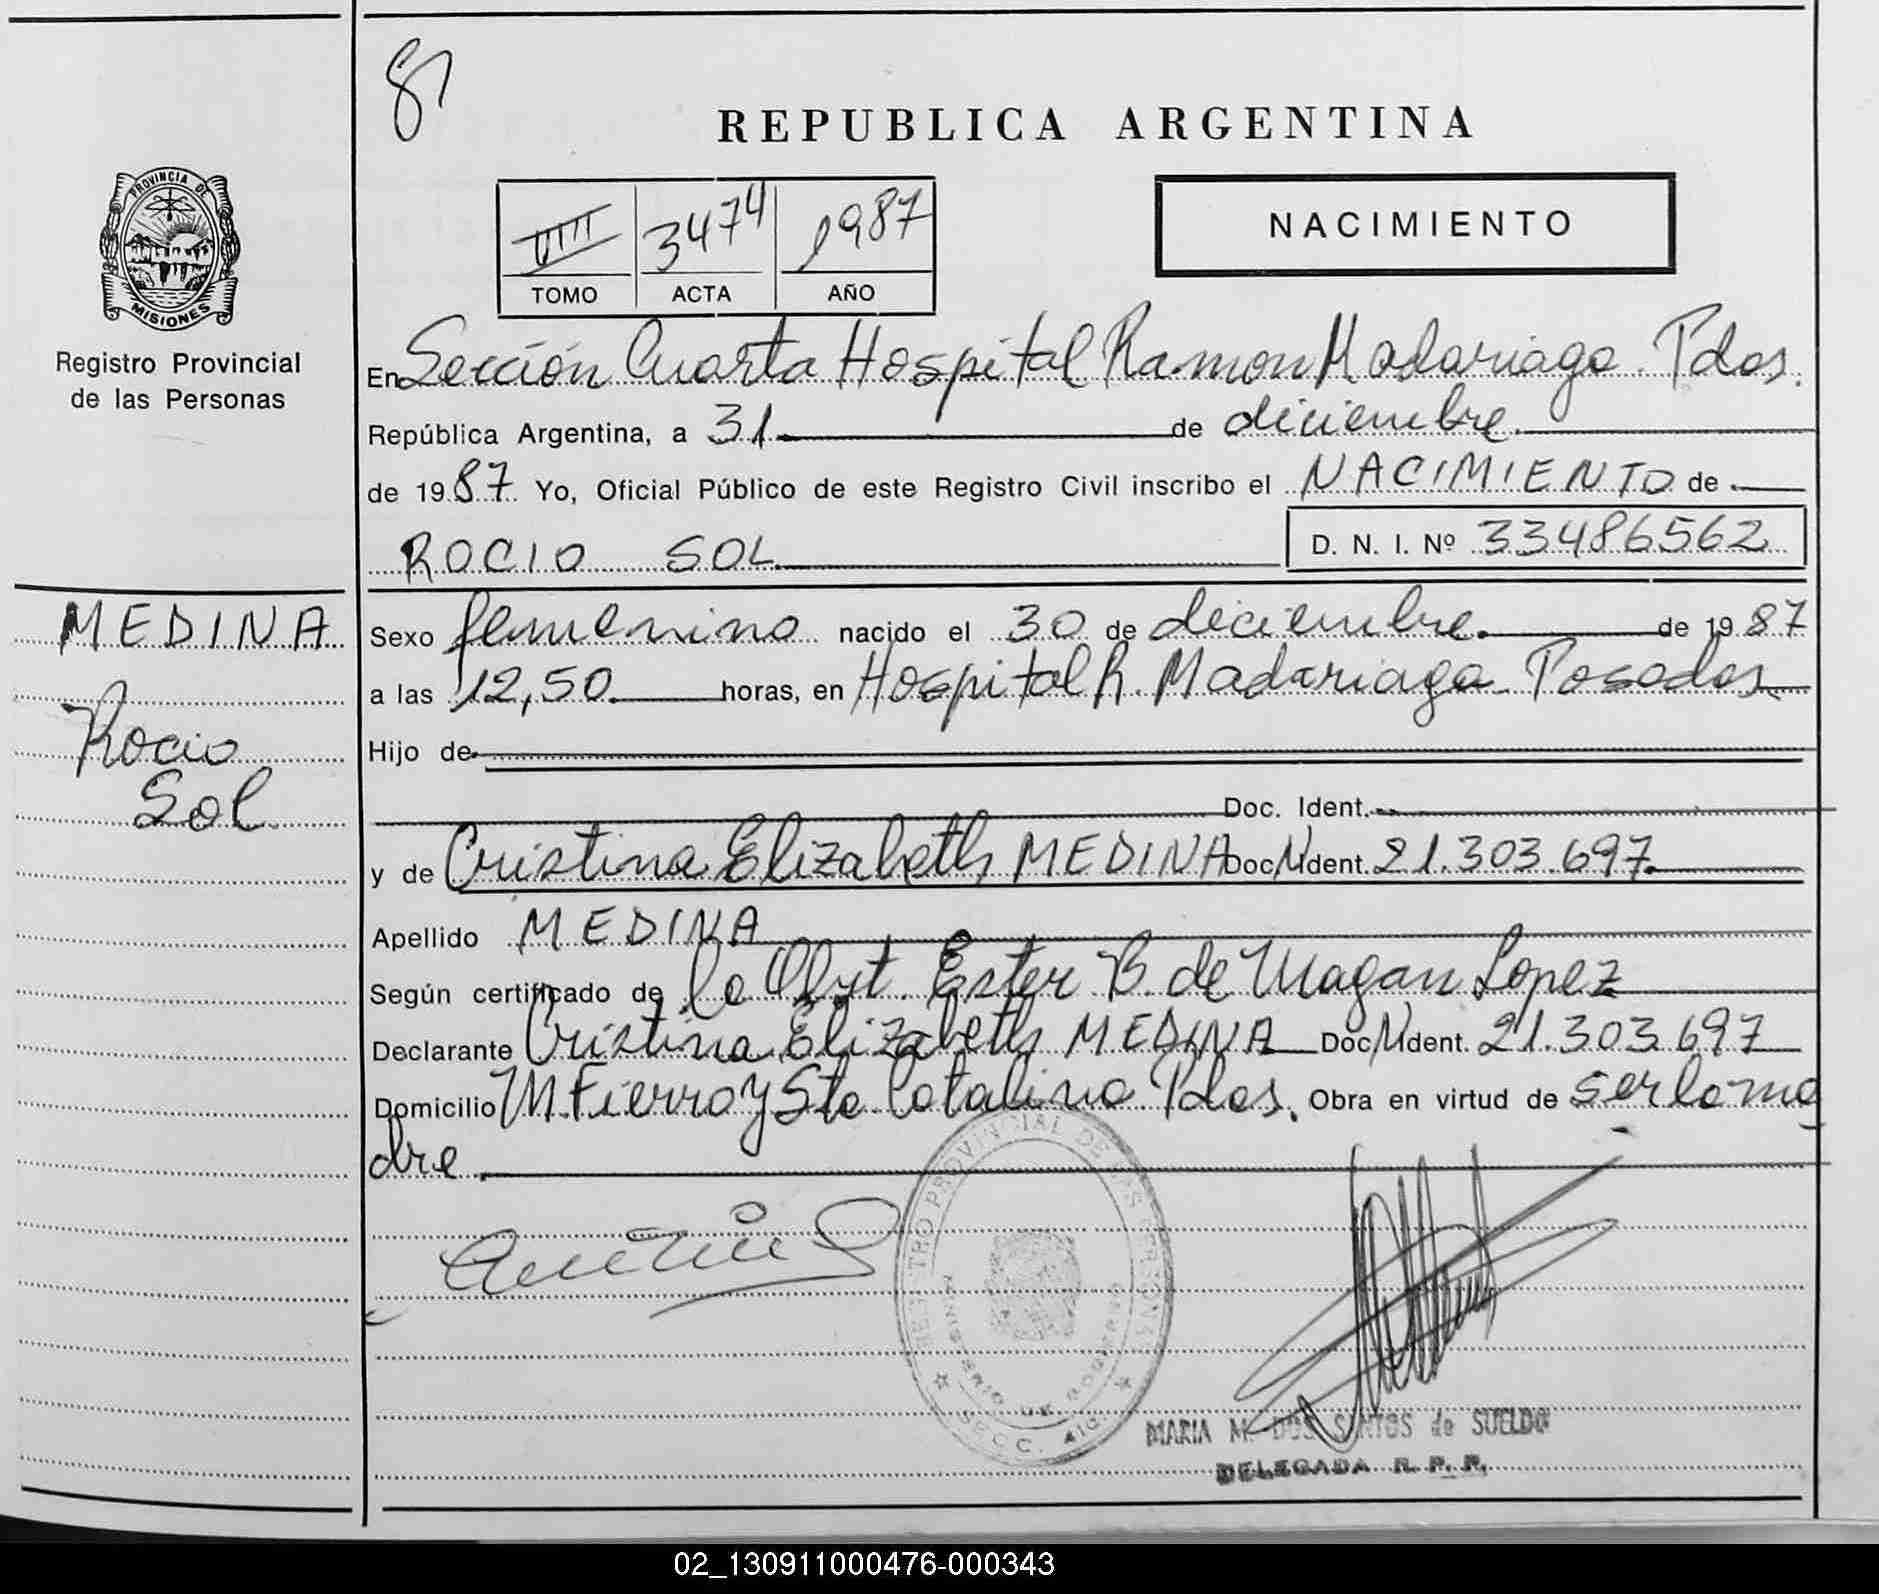 87
REPUBLICA ARGENTINA
PROVINCIA DE
MISIONES
Registro Provincial
de las Personas
VIII 3474 1987
TOMO ACTA AÑO
NACIMIENTO
En Sección Cuarta Hospital Ramon Madariaga. Pdas.
República Argentina, a 31 de diciembre
de 1987 Yo, Oficial Público de este Registro Civil inscribo el NACIMIENTO de
ROCIO SOL D. N. I. Nº 33486562
MEDINA
Rocio
Sol
Sexo femenino nacido el 30 de diciembre. de 1987
a las 12,50 horas, en Hospital R. Madariaga Posadas
Hijo de
Doc. Ident.
y de Cristina Elizabeth MEDINA Doc. Ident. 21.303.697
Apellido MEDINA
Según certificado de la Obst. Ester B. de Magan Lopez
Declarante Cristina Elizabeth MEDINA Doc. Ident. 21.303.697
Domicilio M. Fierro y Sta Catalina Pdas. Obra en virtud de ser la ma
dre
REGISTRO PROVINCIAL DE LAS PERSONAS
MINISTERIO DE GOBIERNO
SECC. 4ta
MARIA M. DOS SANTOS de SUELDO
DELEGADA R. P. P.
02_130911000476-000343